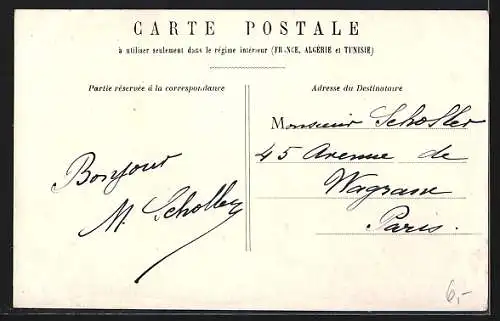 CARTE POSTALE
à utiliser seulement dans le régime intérieur (FRANCE, ALGÉRIE et TUNISIE)
Partie réservée à la correspondance
Adresse du Destinataire
Bonjour
M. Scholley
Monsieur Schosler
45 Avenue de
Wagram
Paris.
6,-